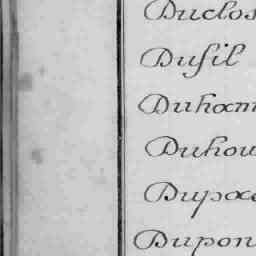 Duclos
Dufil
Duham
Duhou
Dupac
Dupon